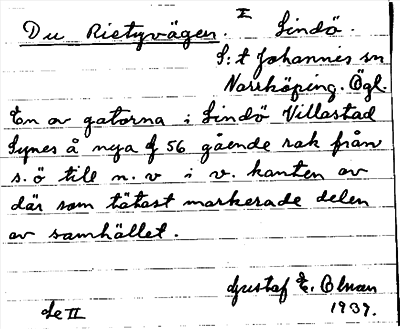 Du Rietzvägen. I Lindö.
S:t Johannies sn
Norrköping. Ögl.
En av gatorna i Lindö Villastad
Synes å nya 56 gående rak från
s.ö till n.v i v. kanten av
där som tätast markerade delen
av samhället.
Gustaf E. Olman
1937.
de II